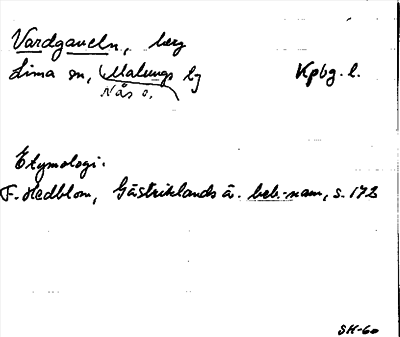 Vardgaveln, berg
Lima sn, Malungs tg Kpbg. l.
Nås o.
Etymologi.
F. Hedblom, Gästriklands ä. beb.-namn, s. 172
SH-60